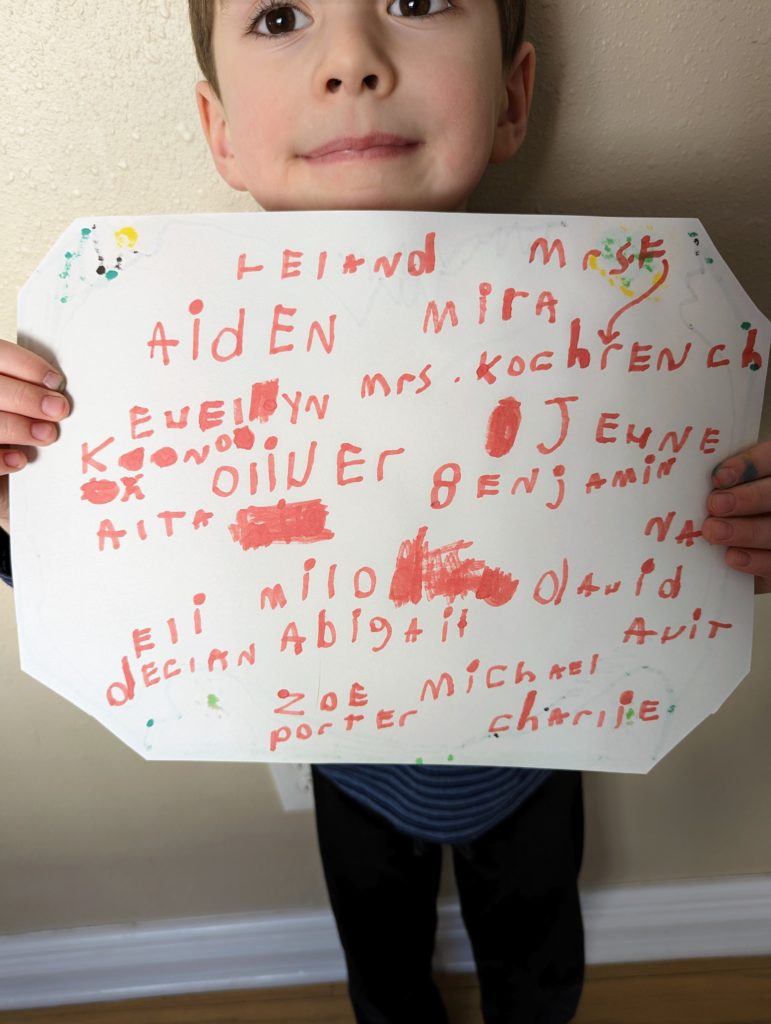 LEIAND MrsE
AiDEN MIrA
mrs. KOChrENCh
EUEIYN
OJEUNE
OliVEr BENjAmiN
AITA NA
Eli milO DAViD
dECIAN AbigAil AUiT
ZOE MiChAEl
pOrTEr ChArliE